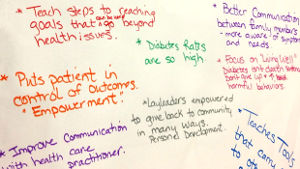 * Teach steps to reaching
goals that can be and go beyond
health issues.
* Diabetes Rates
are so high
* Better Communication
between family members
- more aware of symptoms
and needs
* Focus on "Living Well"
Diabetes isn't death
Don't give up
harmful behaviors.
* Puts patient in
control of outcomes.
"Empowerment."
* Layleaders empowered
to give back to community
in many ways.
Personal Development.
* Improve Communication
with health care
practitioner.
* Teaches Tools
that carry
to oth